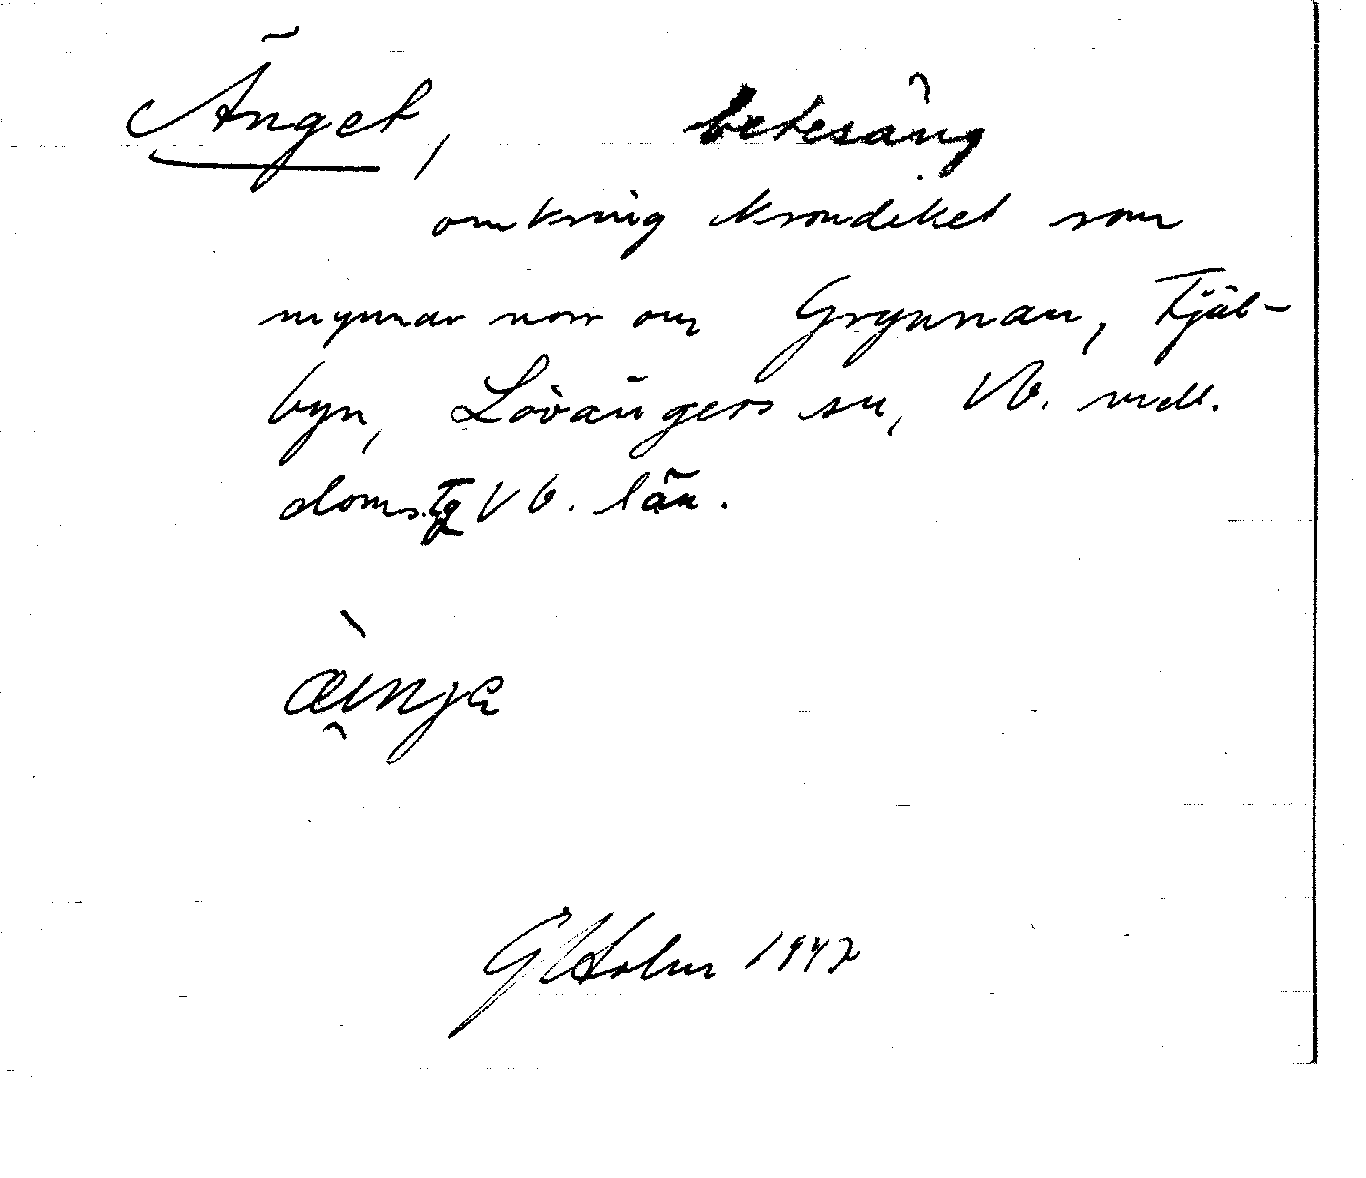 Änget, betesäng
omkring krondiket som
mynnar norr om Grynnan, Kjäl-
byn, Lövångers sn, Vb. mell.
doms. Vb. län.
GHolm 1947